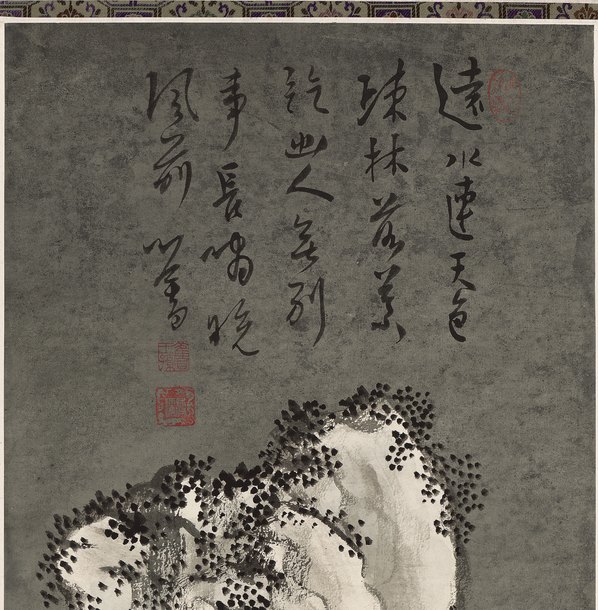 遠水連天色
疎林落葉
訖幽人無別
事長嘯晚
風前 心畬